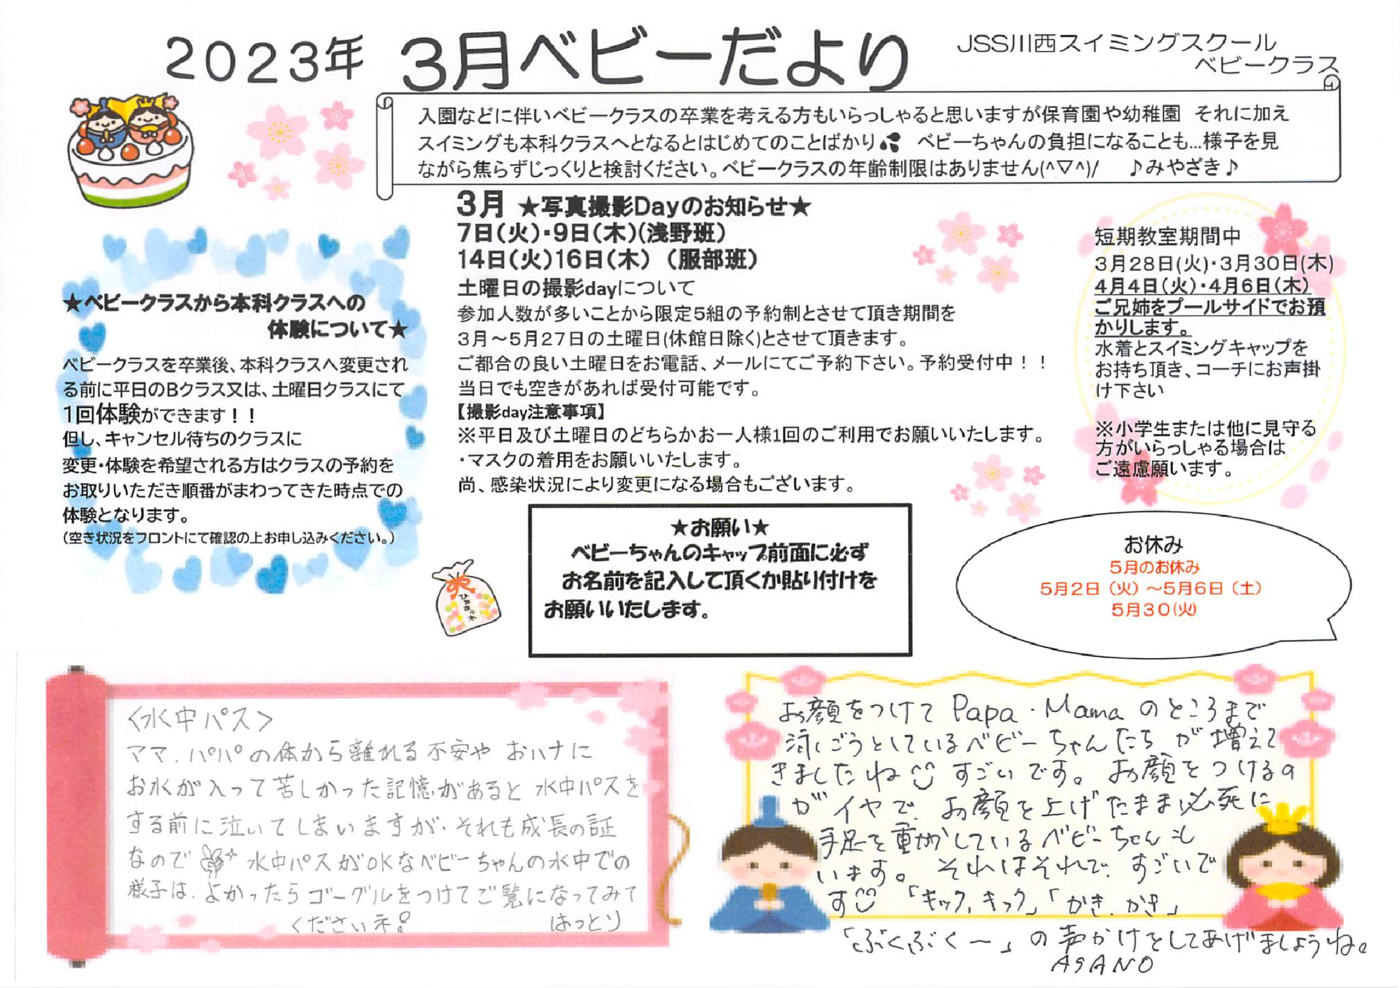 2023年 3月ベビーだより
JSS川西スイミングスクール
ベビークラス
入園などに伴いベビークラスの卒業を考える方もいらっしゃると思いますが保育園や幼稚園 それに加え
スイミングも本科クラスへとなるとはじめてのことばかり💦 ベビーちゃんの負担になることも...様子を見
ながら焦らずじっくりと検討ください。ベビークラスの年齢制限はありません(^▽^)/ ♪みやざき♪
★ベビークラスから本科クラスへの
体験について★
ベビークラスを卒業後、本科クラスへ変更され
る前に平日のBクラス又は、土曜日クラスにて
1回体験ができます！！
但し、キャンセル待ちのクラスに
変更・体験を希望される方はクラスの予約を
お取りいただき順番がまわってきた時点での
体験となります。
(空き状況をフロントにて確認の上お申し込みください。)
3月 ★写真撮影Dayのお知らせ★
7日(火)・9日(木)(浅野班)
14日(火)16日(木) (服部班)
土曜日の撮影dayについて
参加人数が多いことから限定5組の予約制とさせて頂き期間を
3月～5月27日の土曜日(休館日除く)とさせて頂きます。
ご都合の良い土曜日をお電話、メールにてご予約下さい。予約受付中！！
当日でも空きがあれば受付可能です。
【撮影day注意事項】
※平日及び土曜日のどちらかお一人様1回のご利用でお願いいたします。
・マスクの着用をお願いいたします。
尚、感染状況により変更になる場合もございます。
短期教室期間中
3月28日(火)・3月30日(木)
4月4日(火)・4月6日(木)
ご兄姉をプールサイドでお預
かりします。
水着とスイミングキャップを
お持ち頂き、コーチにお声掛
け下さい
※小学生または他に見守る
方がいらっしゃる場合は
ご遠慮願います。
★お願い★
ベビーちゃんのキャップ前面に必ず
お名前を記入して頂くか貼り付けを
お願いいたします。
お休み
5月のお休み
5月2日（火）～5月6日（土）
5月30(火)
<水中パス>
ママ・パパの体から離れる不安や おハナに
お水が入って苦しかった記憶があると 水中パスを
する前に泣いてしまいますが、それも成長の証
なので 水中パスがOKなベビーちゃんの水中での
様子は、よかったらゴーグルをつけてご覧になってみて
くださいネ!
はっとり
お顔をつけて Papa・Mama のところまで
泳ごうとしているベビーちゃんたち が増えて
きましたね すごいです。お顔をつけるの
が イヤで、お顔を上げたまま必死に
手足を動かしているベビーちゃんも
います。 それはそれで、すごいで
す 「キック、キック」「かき、かき」
「ぶくぶくー」の声かけをしてあげましょうね。
ASANO